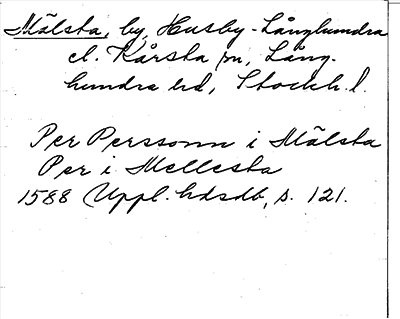 Mälsta, by, Husby-Långhundra
el. Kårsta sn, Lång-
hundra hd, Stockh. l.
Per Personn i Mälsta
Per i Mellesta
1588 Uppl. hdsdb, s. 121.